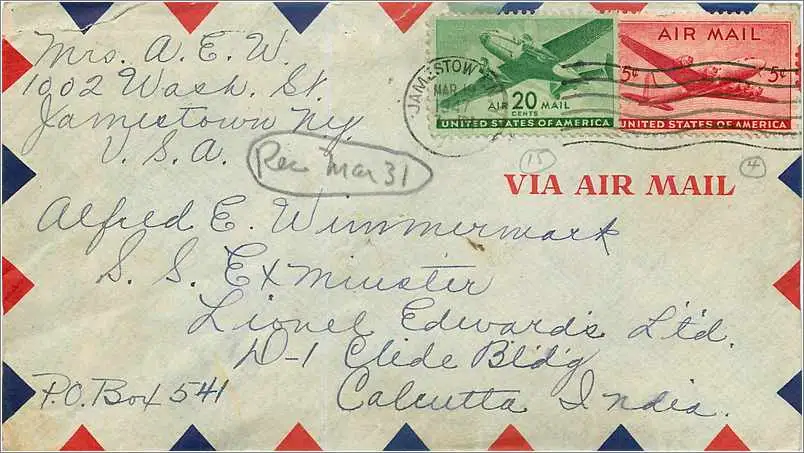 Mrs. A. E. W.
1002 Wash. St.
Jamestown Ny
U. S. A.
Rec Mar 31
JAMESTOW
MAR 19
1947
AIR 20 MAIL
CENTS
UNITED STATES OF AMERICA
AIR MAIL
5¢ 5¢
UNITED STATES OF AMERICA
15 4
VIA AIR MAIL
Alfred E. Wimmermark
S. S. Exminster
Lionel Edwards Ltd.
D-1 Clide Bldg
P.O. Box 541
Calcutta India.